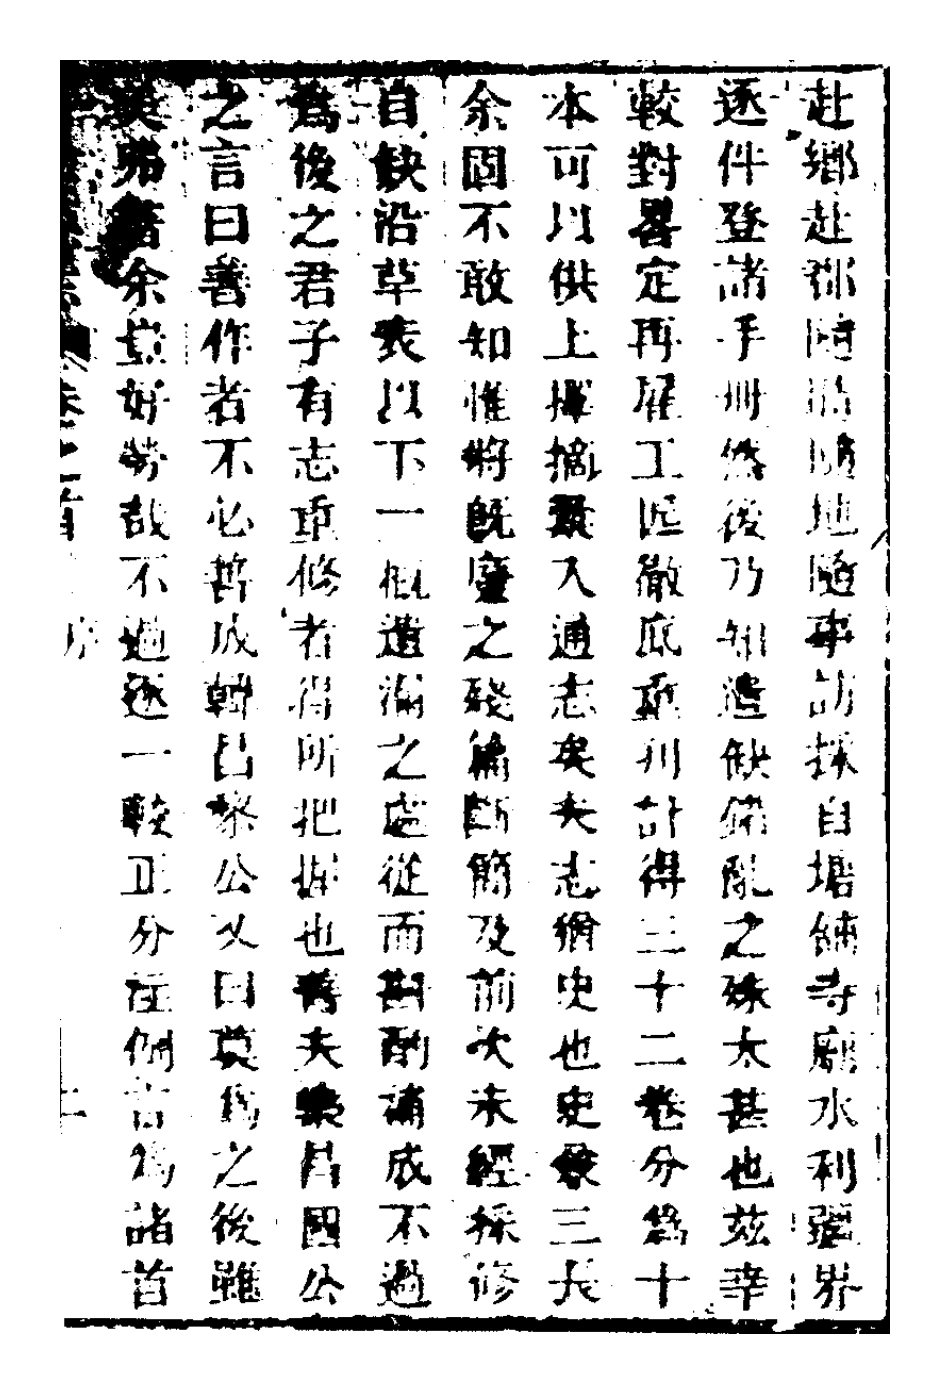 赴鄉赴郡隨沿隨地隨事訪採自塘鋪寺廟水利疆界
逐件登諸手冊然後乃知遺缺錯亂之殊太甚也茲幸
較對畧定再雇工匠徹底重刋計得三十二卷分爲十
本可以供上擇摘彚入通志矣夫志猶史也史兼三長
余固不敢知惟將旣廢之殘編斷簡及前次未經採修
自缺沿草表以下一概遺漏之處從而斟酌補成不過
爲後之君子有志重修者得所把握也舊夫樂昌國公
之言曰善作者不必善成韓呂黎公又曰莫爲之後雖
美弗著余豈好勞哉不過逐一較正分註例言爲諸首
卷之首 序 二